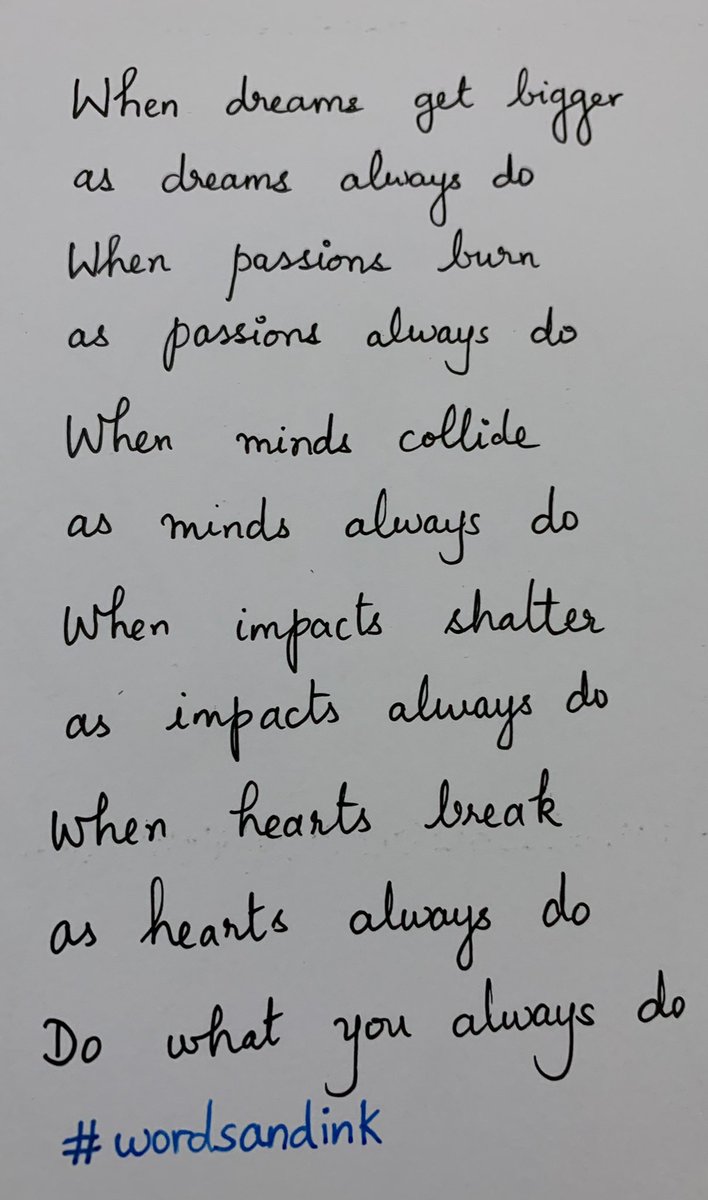 When dreams get bigger
as dreams always do
When passions burn
as passions always do
When minds collide
as minds always do
When impacts shatter
as impacts always do
When hearts break
as hearts always do
Do what you always do
#wordsandink